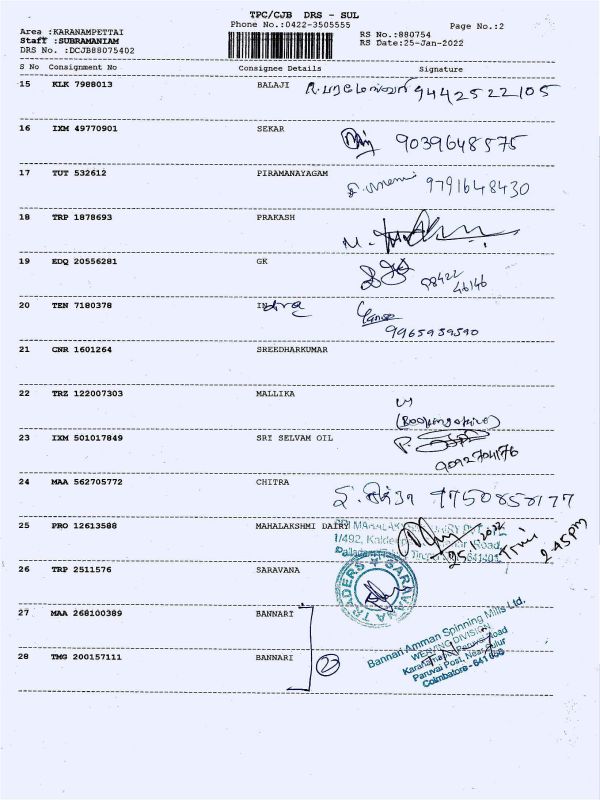 TPC/CJB DRS - SUL
Phone No.:0422-3505555
Page No.:2
Area :KARANAMPETTAI
Staff :SUBRAMANIAM
DRS No. :DCJB88075402
RS No.:880754
RS Date:25-Jan-2022
S No Consignment No Consignee Details Signature
15 KLK 7988013 BALAJI 9442522105
16 IXM 49770901 SEKAR 9039648575
17 TUT 532612 PIRAMANAYAGAM 9791648430
18 TRP 1878693 PRAKASH M.
19 EDQ 20556281 GK 98422
46146
20 TEN 7180378
9965939590
21 CNR 1601264 SREEDHARKUMAR
22 TRZ 122007303 MALLIKA
23 IXM 501017849 SRI SELVAM OIL P.
9092704176
24 MAA 562705772 CHITRA 9750858177
25 PRO 12613588 MAHALAKSHMI DAIRY
2.45pm
26 TRP 2511576 SARAVANA
SARAVANA TRADERS
27 MAA 268100389 BANNARI
28 TMG 200157111 BANNARI
Bannari Amman Spinning Mills Ltd.
WEAVING DIVISION
Road
Paruvai Post, Near Sulur
Coimbatore - 641